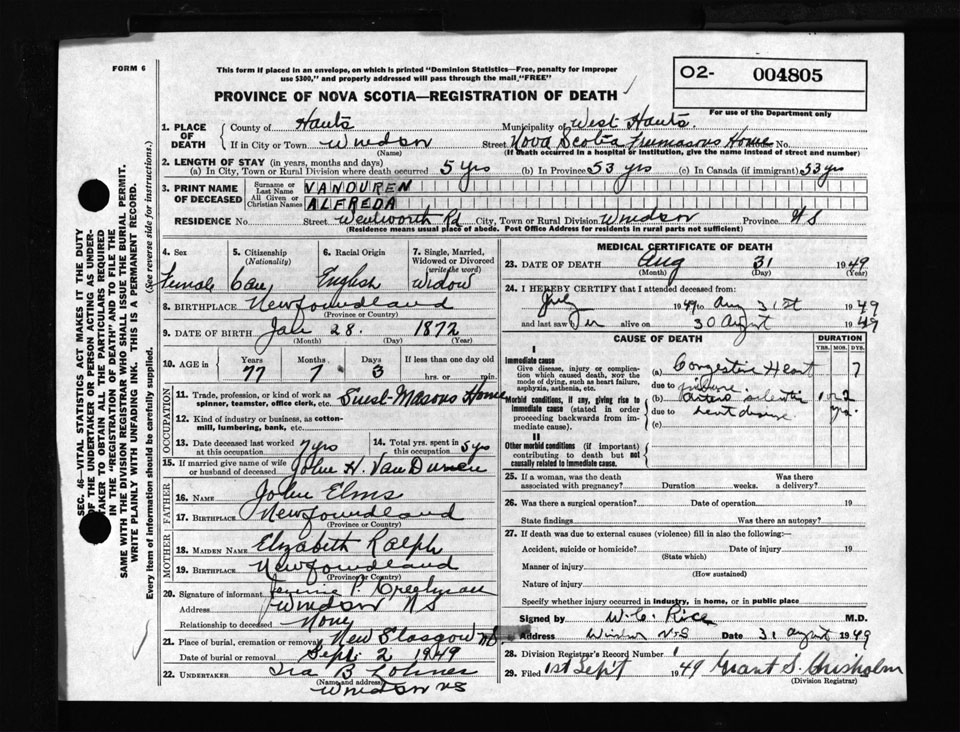 FORM 6
This form if placed in an envelope, on which is printed "Dominion Statistics—Free, penalty for improper
use $300," and properly addressed will pass through the mail "FREE"
O2- 004805
PROVINCE OF NOVA SCOTIA—REGISTRATION OF DEATH
For use of the Department only
1. PLACE OF DEATH
County of Hants Municipality of West Hants.
If in City or Town Windsor Street Nova Scotia Freemasons Home No.
(Name) (If death occurred in a hospital or institution, give the name instead of street and number)
2. LENGTH OF STAY (in years, months and days)
(a) In City, Town or Rural Division where death occurred 5 yrs (b) In Province 53 yrs (c) In Canada (if immigrant) 53 yrs
3. PRINT NAME OF DECEASED
Surname or Last Name VANDUREN
All Given or Christian Names ALFREDA
RESIDENCE No. Street Wentworth Rd City, Town or Rural Division Windsor Province N S
(Residence means usual place of abode. Post Office Address for residents in rural parts not sufficient)
4. Sex 5. Citizenship (Nationality) 6. Racial Origin 7. Single, Married, Widowed or Divorced (write the word)
Female Can, English Widow
8. BIRTHPLACE Newfoundland
(Province or Country)
9. DATE OF BIRTH Jan 28. 1872
(Month) (Day) (Year)
10. AGE in Years Months Days If less than one day old
77 7 3 hrs. or min.
11. Trade, profession, or kind of work as spinner, teamster, office clerk, etc. Guest-Masons Home
12. Kind of industry or business, as cotton-mill, lumbering, bank, etc.
13. Date deceased last worked at this occupation 7 yrs 14. Total yrs. spent in this occupation 5 yrs
15. If married give name of wife or husband of deceased John H. VanDuren
FATHER
16. NAME John Elms
17. BIRTHPLACE Newfoundland
(Province or Country)
MOTHER
18. MAIDEN NAME Elizabeth Ralph
19. BIRTHPLACE Newfoundland
(Province or Country)
20. Signature of informant P.
Address Windsor NS
Relationship to deceased None
21. Place of burial, cremation or removal New Glasgow NS
Date of burial or removal Sept. 2 1949
22. UNDERTAKER Ira B
(Name and address)
Windsor NS
MEDICAL CERTIFICATE OF DEATH
23. DATE OF DEATH Aug 31 1949
(Month) (Day) (Year)
24. I HEREBY CERTIFY that I attended deceased from:
July 1949 to Aug 31st 1949
and last saw her alive on 30 August 1949
CAUSE OF DEATH DURATION
YRS. MOS. DYS.
I
Immediate cause
Give disease, injury or complication which caused death, not the mode of dying, such as heart failure, asphyxia, asthenia, etc.
(a) Congestive Heart 7
due to failure.
Morbid conditions, if any, giving rise to immediate cause (stated in order proceeding backwards from immediate cause).
(b) 1 or 2
due to heart disease. yrs.
(c)
II
Other morbid conditions (if important) contributing to death but not causally related to immediate cause.
25. If a woman, was the death associated with pregnancy? Duration weeks. Was there a delivery?
26. Was there a surgical operation? Date of operation 19
State findings Was there an autopsy?
27. If death was due to external causes (violence) fill in also the following:
Accident, suicide or homicide? Date of injury 19
(State which)
Manner of injury
(How sustained)
Nature of injury
Specify whether injury occurred in industry, in home, or in public place
Signed by W.C. Rice M.D.
Address Windsor N.S Date 31 August 1949
28. Division Registrar's Record Number 1
29. Filed 1st Sept 1949 Grant S. Chisholm
(Division Registrar)
SEC. 46—VITAL STATISTICS ACT MAKES IT THE DUTY
OF THE UNDERTAKER OR PERSON ACTING AS UNDER-
TAKER TO OBTAIN ALL THE PARTICULARS REQUIRED
IN THE "REGISTRATION OF DEATH" AND TO FILE THE
SAME WITH THE DIVISION REGISTRAR WHO SHALL ISSUE THE BURIAL PERMIT.
WRITE PLAINLY WITH UNFADING INK. THIS IS A PERMANENT RECORD.
Every item of information should be carefully supplied. (See reverse side for instructions.)